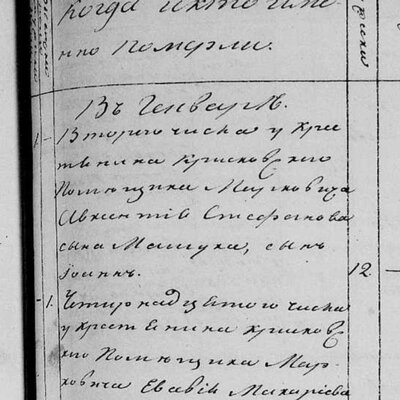 Когда и кто име
нно померли.
Въ Генварѣ.
1 Второго числа у крес
тянина крисковского
помѣщика Марковича
Авксентія Стефанова
сына Мащука, сынъ
Іоаннъ. 12
1. Четирнадцятого числа
у крестянина крисковс
кго помѣщика Мар
ковича Евавія Макаріева